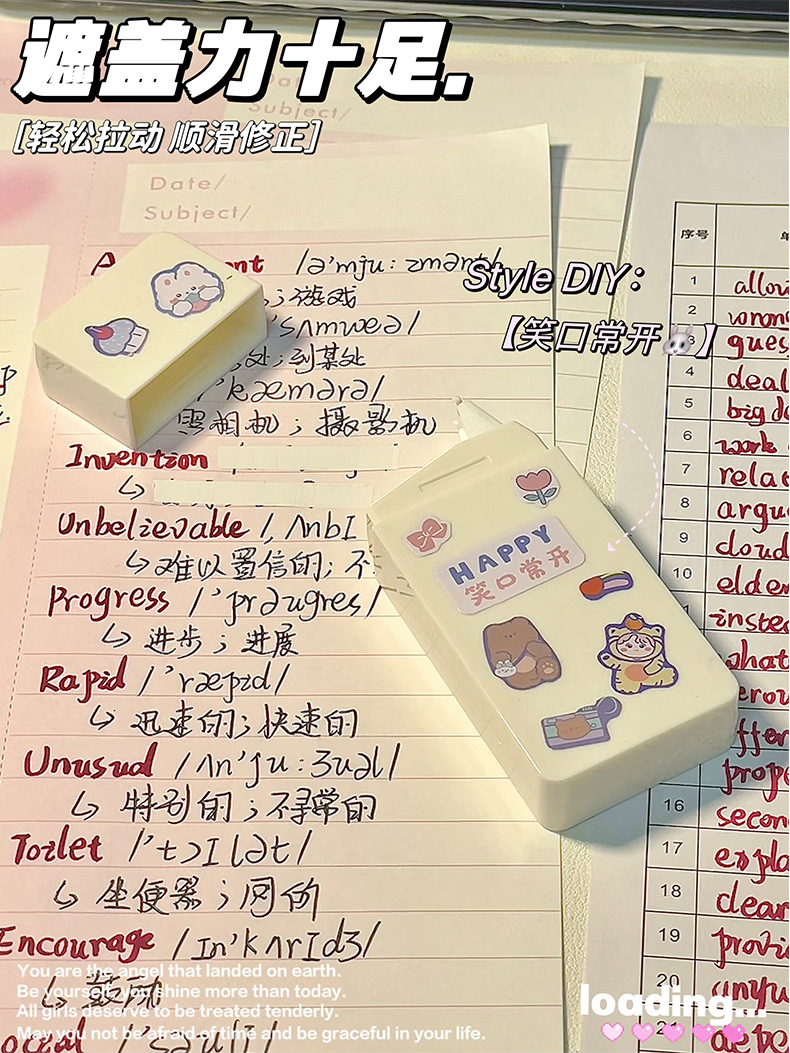 遮盖力十足.
[轻松拉动 顺滑修正]
Subject/
Date/
Subject/
/ə'mju:zmənt/
;游戏
Style DIY:
【笑口常开🐰】
'sʌmweə/
处;到某处
'kæmərə/
照相机;摄影机
Invention
Unbelievable /,ʌnbI
↳难以置信的;不
Progress /'prəugres/
↳ 进步;进展
Rapid /'ræpid/
↳ 迅速的;快速的
Unusual /ʌn'ju:ʒuəl/
↳ 特别的;不寻常的
Toilet /'tɔIlət/
↳ 坐便器;厕所
Encourage /In'kʌrIdʒ/
↳ 鼓动
HAPPY
笑口常开
序号
1 allow
2 wrong
3 gues
4 deal
5 big de
6 work
7 relat
8 argu
9 cloud
10 elder
instea
what
prope
16 secon
17 expla
18 clear
19 provi
20
21
You are the angel that landed on earth.
Be yourself, you shine more than today.
All girls deserve to be treated tenderly.
May you not be afraid of time and be graceful in your life.
loading...